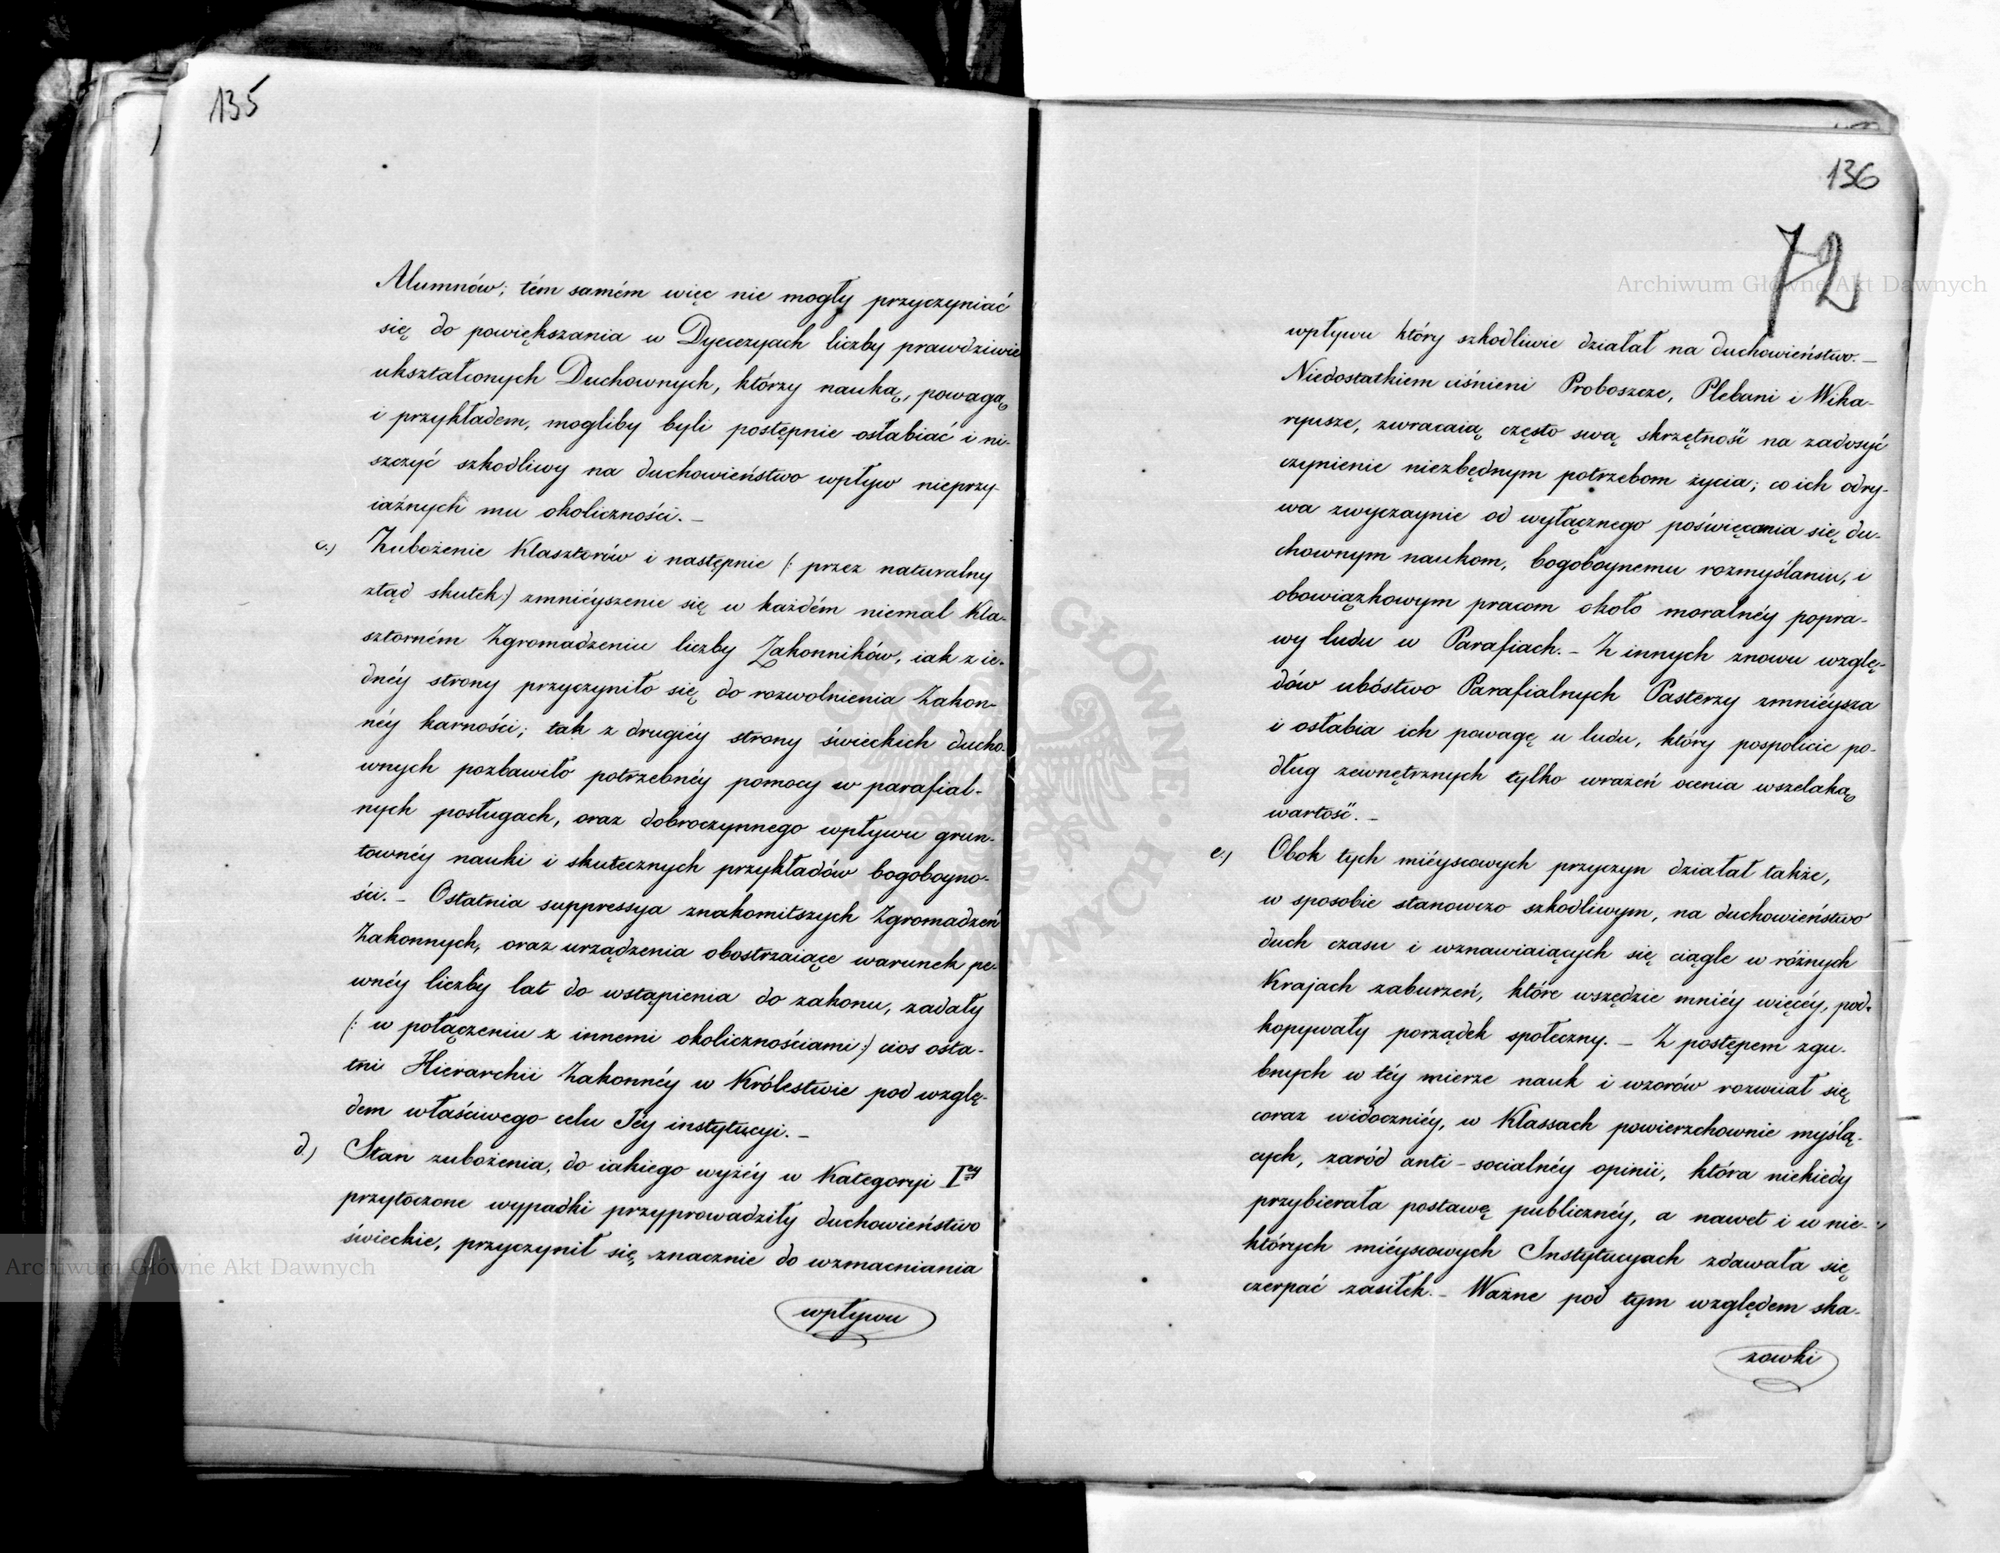 135
Alumnów; tém samém więc nie mogły przyczyniać
się do powiększania w Dyecezyach liczby prawdziwie
ukształconych Duchownych, którzy nauką, powagą
i przykładem, mogliby byli postępnie osłabiać i ni-
szczyć szkodliwy na duchowieństwo wpływ nieprzy-
iaźnych mu okoliczności. –
c.) Zubożenie Klasztorów i następnie (: przez naturalny
ztąd skutek :) zmnieyszenie się w każdém niemal Kla-
sztorném Zgromadzeniu liczby Zakonników, iak z ie-
dnéy strony przyczyniło się do rozwolnienia Zakon-
néy karności; tak z drugiéy strony świeckich ducho-
wnych pozbawiło potrzebnéy pomocy w parafial-
nych posługach, oraz dobroczynnego wpływu grun-
townéy nauki i skutecznych przykładów bogoboyno-
ści. – Ostatnia suppressya znakomitszych Zgromadzeń
Zakonnych, oraz urządzenia obostrzaiące warunek pe-
wnéy liczby lat do wstąpienia do zakonu, zadały
(: w połączeniu z innemi okolicznościami :) cios osta-
tni Hierarchii Zakonnéy w Królestwie pod wzglę-
dem właściwego celu Jéy instytucyi. –
d.) Stan zubożenia, do iakiego wyżéy w Kategoryi I<sup>éy</sup>
przytoczone wypadki przyprowadziły duchowieństwo
świeckie, przyczynił się znacznie do wzmacniania
wpływu
136
72
wpływu który szkodliwie działał na duchowieństwo. –
Niedostatkiem ciśnieni Proboszcze, Plebani i Wika-
ryusze, zwracaią często swą skrzętność na zadosyć
czynienie niezbędnym potrzebom życia; co ich odry-
wa zwyczaynie od wyłącznego poświęcania się du-
chownym naukom, bogoboynemu rozmyślaniu, i
obowiązkowym pracom około moralnéy popra-
wy ludu w Parafiach. – Z innych znowu wzglę-
dów ubóstwo Parafialnych Pasterzy zmniéysza
i osłabia ich powagę u ludu, który pospolicie po-
dług zewnętrznych tylko wrażeń ocenia wszelaką
wartość. –
e.) Obok tych miéyscowych przyczyn działał także,
w sposobie stanowczo szkodliwym, na duchowieństwo
duch czasu i wznawiaiących się ciągle w różnych
Krajach zaburzeń, które wszędzie mniéy więcéy, pod-
kopywały porządek społeczny. – Z postępem zgu-
bnych w téy mierze nauk i wzorów rozwiiał się
coraz widoczniéy, w Klassach powierzchownie myślą-
cych, zaród anti-socialnéy opinii, która niekiedy
przybierała postawę publicznéy, a nawet i w nie-
których miéyscowych Instytucyach zdawała się
czerpać zasiłek. – Ważne pod tym względem ska-
zowki
Archiwum Główne Akt Dawnych
Archiwum Główne Akt Dawnych